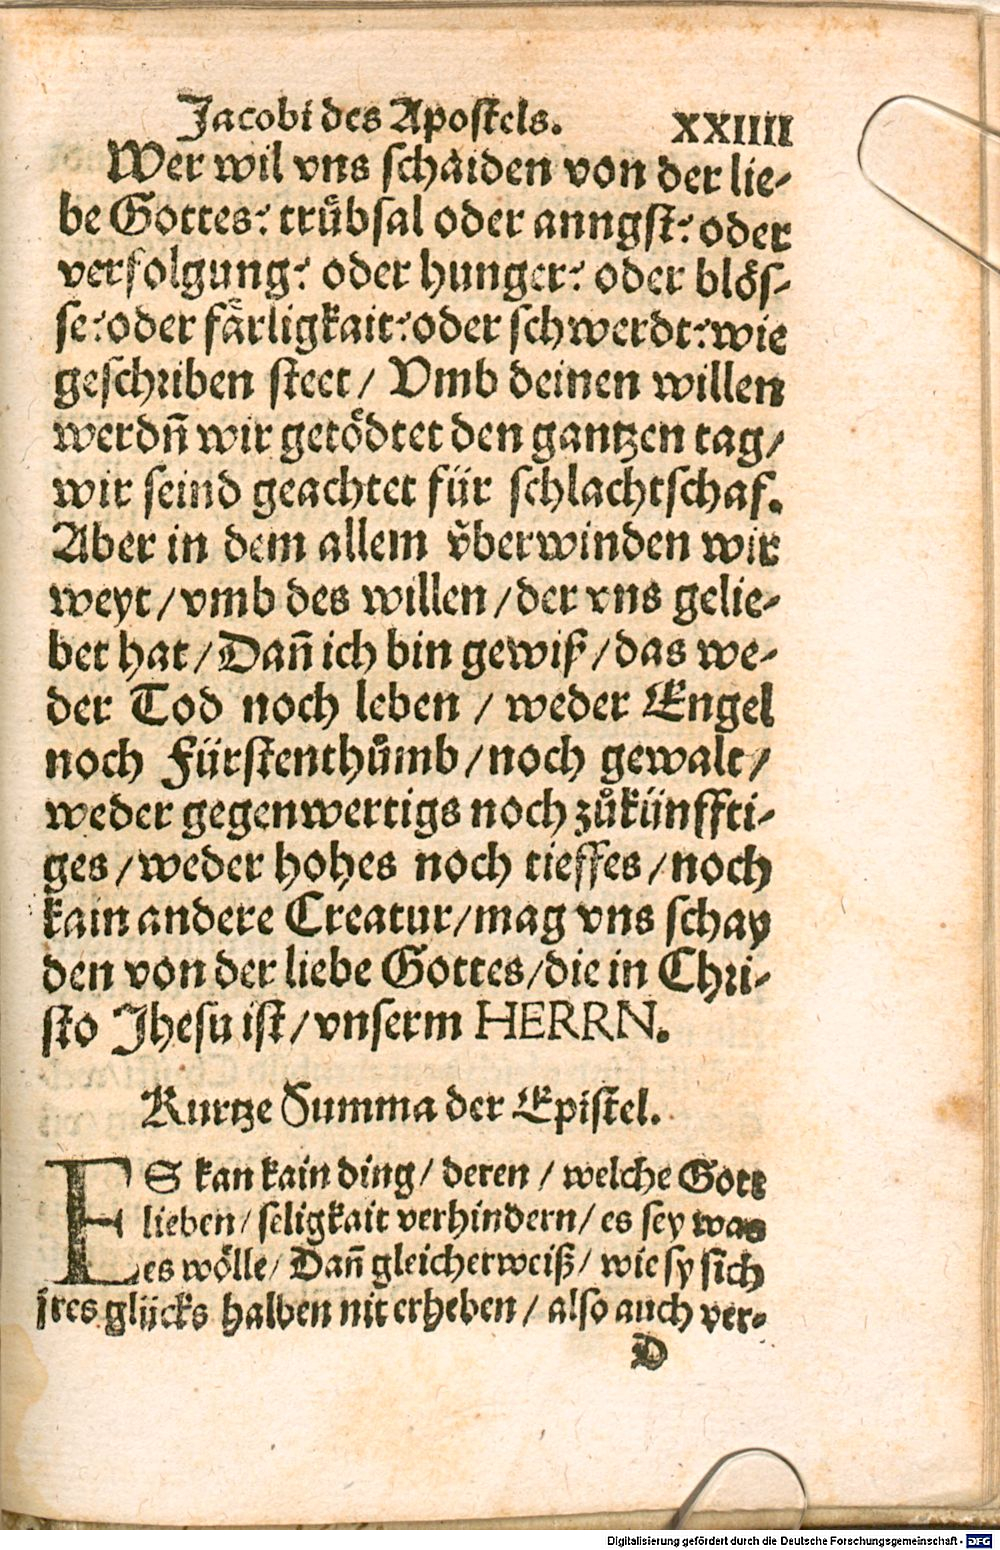 Jacobi des Apostels. XXIIII
Wer wil vns schaiden von der lie-
be Gottes? trübsal oder anngst? oder
verfolgung? oder hunger? oder blös-
se? oder färligkait? oder schwerdt? wie
geschriben steet / Vmb deinen willen
werdn̄ wir getödtet den gantzen tag /
wir seind geachtet für schlachtschaf.
Aber in dem allem vͤberwinden wir
weyt / vmb des willen / der vns gelie-
bet hat / Dan̄ ich bin gewiß / das we-
der Tod noch leben / weder Engel
noch Fürstenthůmb / noch gewalt /
weder gegenwertigs noch zůkünffti-
ges / weder hohes noch tieffes / noch
kain andere Creatur / mag vns schay
den von der liebe Gottes / die in Chri-
sto Jhesu ist / vnserm HERRN.
Kurtze Summa der Epistel.
ES kan kain ding / deren / welche Gott
lieben / seligkait verhindern / es sey was
es wölle / Dan̄ gleicherweiß / wie sy sich
jres glücks halben nit erheben / also auch ver-
D
Digitalisierung gefördert durch die Deutsche Forschungsgemeinschaft - DFG